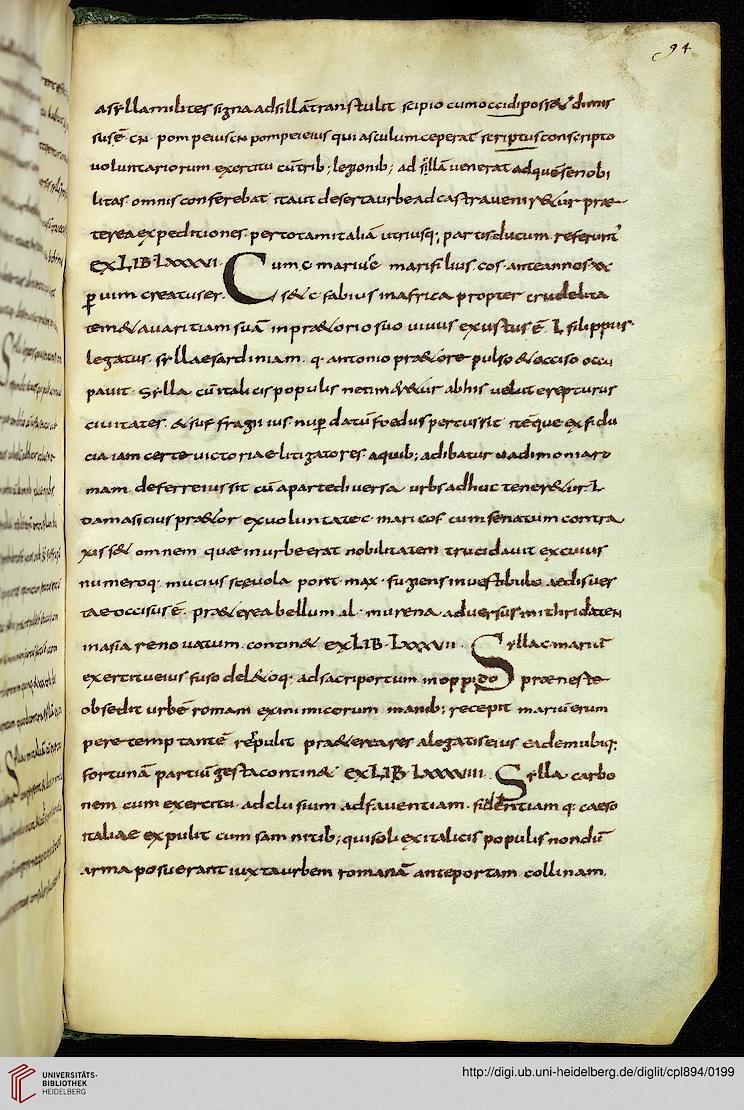 94
asyllamilites signa adsillā transtulit scipio cum occidi posset dimis
sus ē cn pompeius cn pompei eius qui asculum ceperat scriptus conscripto
voluntariorum exercitu cū trib; legionib; ad syllā venerat ad quē se nobi
litas omnis conferebat ita ut deserta urbe ad castra veniretur præ
terea expeditiones per totam italiā utriusq; partis ducum referunt
EX LIB LXXXVI Cum c marius c mari filius cos ante annos xx
per vim creatus er& c fabius in africa propter crudelita
tem & avaritiam suā in prætorio suo vivus exustus ē L filippus
legatus syllae sardiniam q antonio prætore pulso & occiso occu
pavit Sylla cū italicis populis ne timeretur ab his velut erepturus
civitates & suffragii ius nup datū foedus percussit itēque ex fidu
cia iam certe victoriae litigatores a quib; adibatur vadimonia ro
mam deferre iussit cū a parte diversa urbs adhuc teneretur L
damasicius prætor ex voluntate c mari cos cum senatum contra
xisset omnem quæ in urbe erat nobilitatem trucidavit ex cuius
numero q mucius scevola pont max fugiens in vestibulo aedis ves
tae occisus ē præterea bellum a l murena adversus mithridaten
in asia renovatum continet EX LIB LXXXVII Sylla c mariū
exercitu eius fuso deletoq ad sacriportum in oppido præneste
obsedit urbē romam ex inimicorum manib; recepit mariū erum
pere temptantē repulit præterea res a legatis eius eadem ubiq;
fortunā partiū gesta continet EX LIB LXXXVIII Sylla carbo
nem cum exercitu ad clusium ad faventiam fidentiam q caeso
italiae expulit cum samnitib; qui soli ex italicis populis nondū
arma posuerant iuxta urbem romanā ante portam collinam
UNIVERSITÄTS-
BIBLIOTHEK
HEIDELBERG
http://digi.ub.uni-heidelberg.de/diglit/cpl894/0199